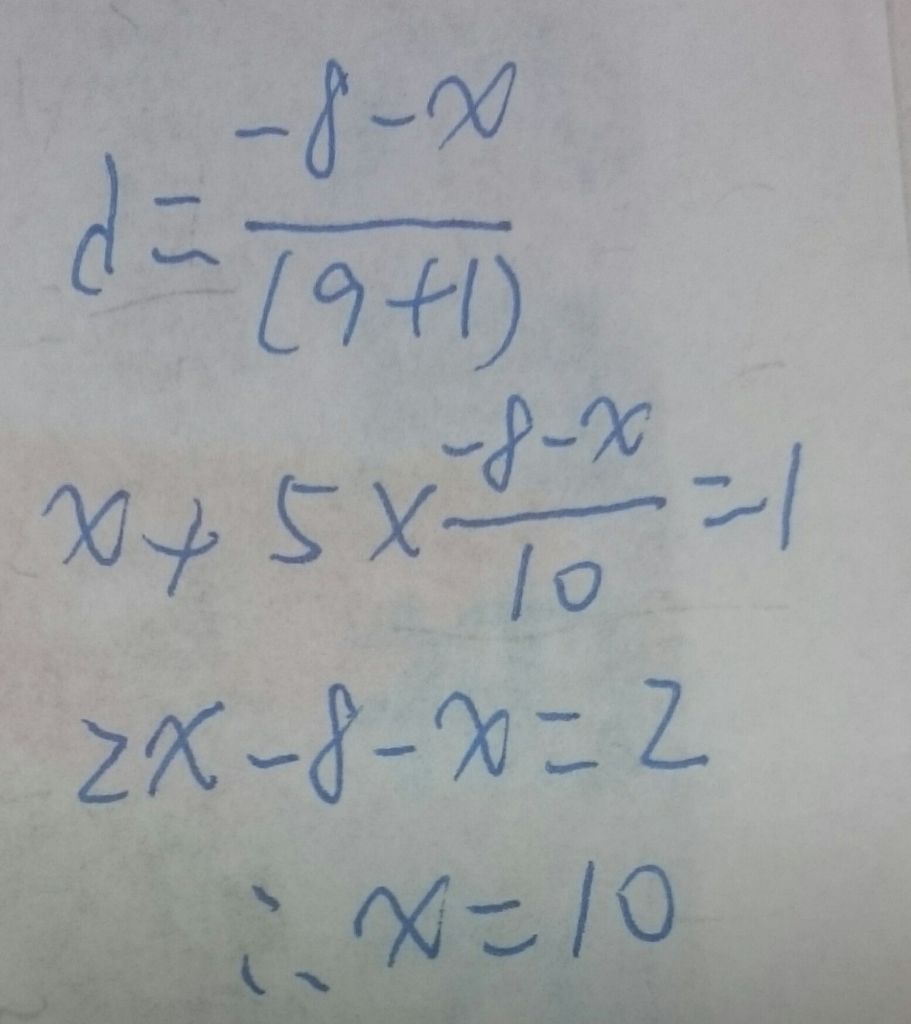 d = \frac{-8-x}{(9+1)}
x + 5 × \frac{-8-x}{10} = 1
2x - 8 - x = 2
∴ x = 10